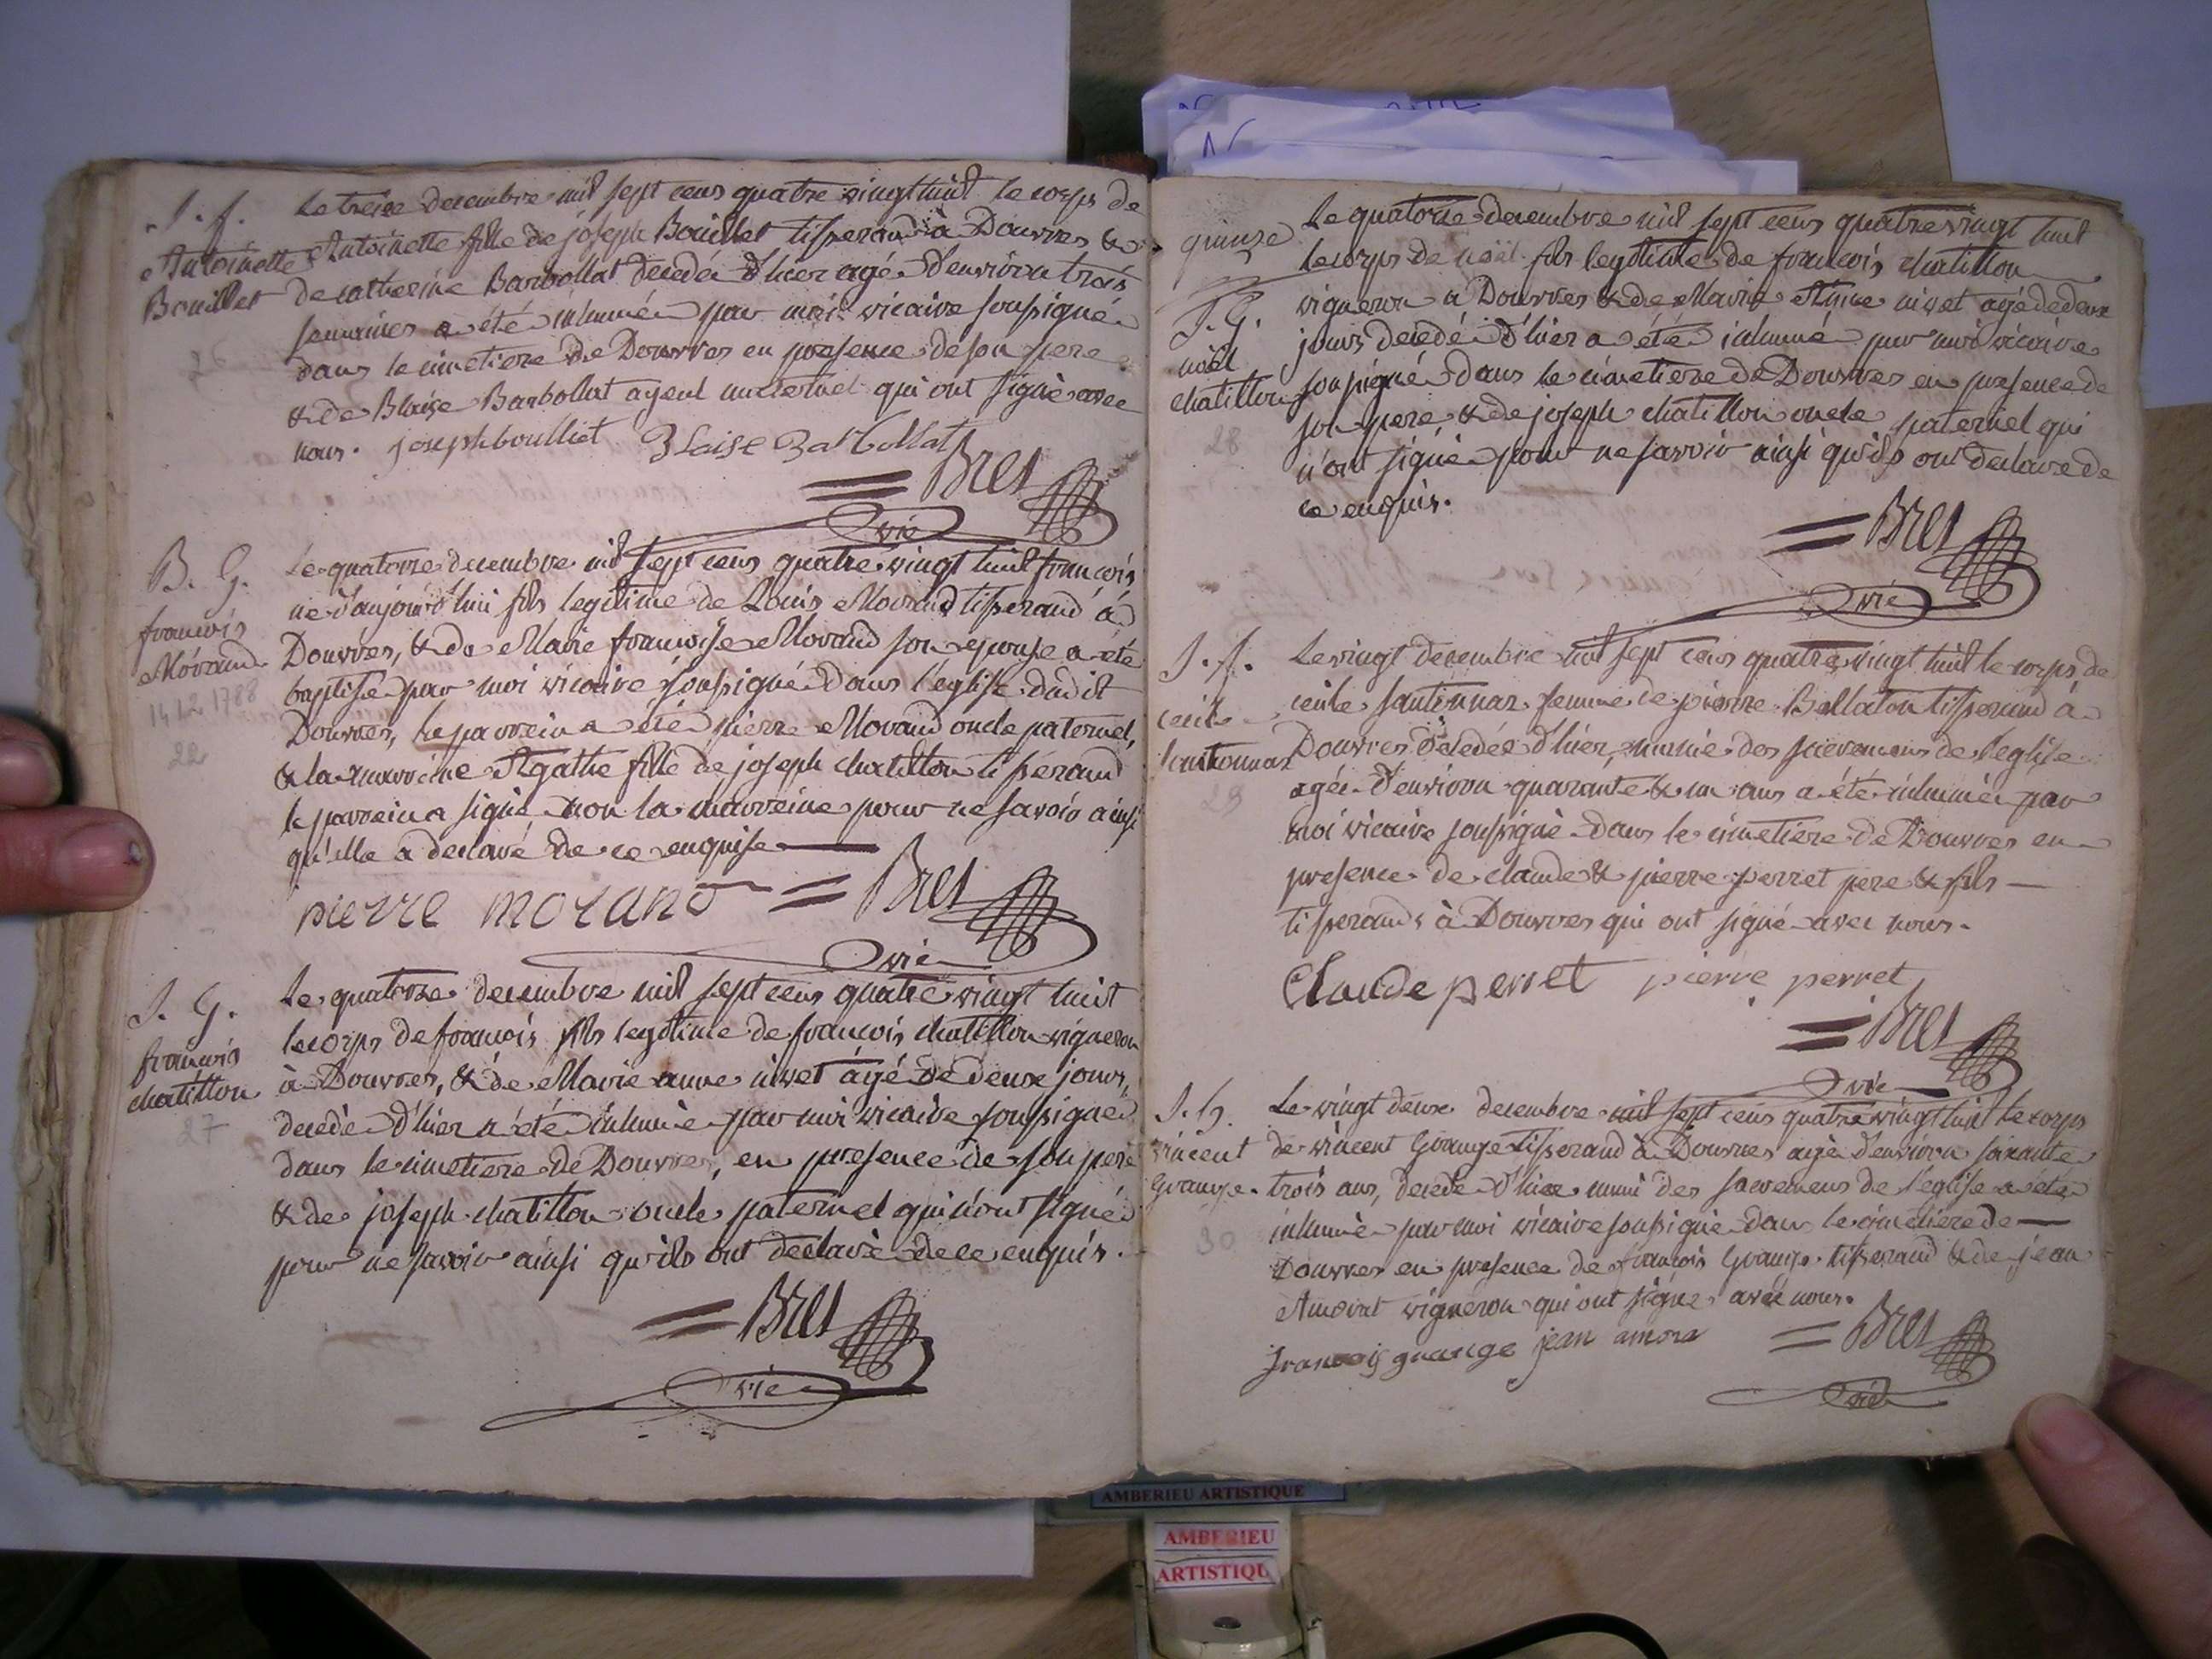 J. f.
Antoinette
Bouillet
26
Le treize decembre mil sept cens quatre vingt huit le corps de
Antoinette fille de joseph Bouillet tisserand à Douvres &
de catherine Barbollat decedée d'hier agée d'environ trois
semaines a été inhumée par moi vicaire soussigné
dans le cimetiere de Douvres en presence de son pere
& de Blaise Barbollat ayeul maternel qui ont signé avec
nous. joseph boulliet Blaise Barbollat
= Bret
vic
B. G.
francois
Morand
14 12 1788
22
Le quatorze decembre mil sept cens quatre vingt huit francois
né d'aujourd'hui fils legitime de Louis Morand tisserand à
Douvres, & de Marie francoise Morand son epouse a été
baptisé par moi vicaire soussigné dans l'eglise dudit
Douvres, le parrein a été pierre Morand oncle paternel,
& la marreine Agathe fille de joseph chatillon tisserand
le parrein a signé non la marreine pour ne savoir ainsi
qu'elle a declaré de ce enquise
pierre morand = Bret
vic
J. G.
francois
chatillon
27
Le quatorze decembre mil sept cens quatre vingt huit
le corps de francois fils legitime de francois chatillon vigneron
à Douvres, & de Marie anne nivet agé de deux jours,
decedé d'hier a été inhumé par moi vicaire soussigné
dans le cimetiere de Douvres, en presence de son pere
& de joseph chatillon oncle paternel qui n'ont signé
pour ne savoir ainsi qu'ils ont declaré de ce enquis.
= Bret
vic
quinze
J. G.
noël
chatillon
28
Le quatorze decembre mil sept cens quatre vingt huit
le corps de noël fils legitime de francois chatillon
vigneron à Douvres & de Marie Anne nivet agé de deux
jours decedé d'hier a été inhumé par moi vicaire
soussigné dans le cimetiere de Douvres en presence de
son pere & de joseph chatillon oncle paternel qui
n'ont signé pour ne savoir ainsi qu'ils ont declaré de
ce enquis.
= Bret
vic
J. f.
cecile
santonnax
29
Le vingt decembre mil sept cens quatre vingt huit le corps de
cecile santonnax femme de pierre Bellaton tisserand à
Douvres decedée d'hier, munie des sacremens de l'eglise
agée d'environ quarante & un ans a été inhumée par
moi vicaire soussigné dans le cimetiere de Douvres en
presence de claude & pierre perret pere & fils
tisserands à Douvres qui ont signé avec nous.
Claude perret pierre perret
= Bret
vic
J. h.
vincent
Grange.
30
Le vingt deux decembre mil sept cens quatre vingt huit le corps
de vincent Grange tisserand à Douvres agé d'environ soixante
trois ans, decedé d'hier muni des sacremens de l'eglise a été
inhumé par moi vicaire soussigné dans le cimetiere de
Douvres en presence de francois Grange tisserand & de jean
Amorat vigneron qui ont signé avec nous.
francois grange jean amora = Bret
vic
AMBERIEU ARTISTIQUE
AMBERIEU
ARTISTIQU